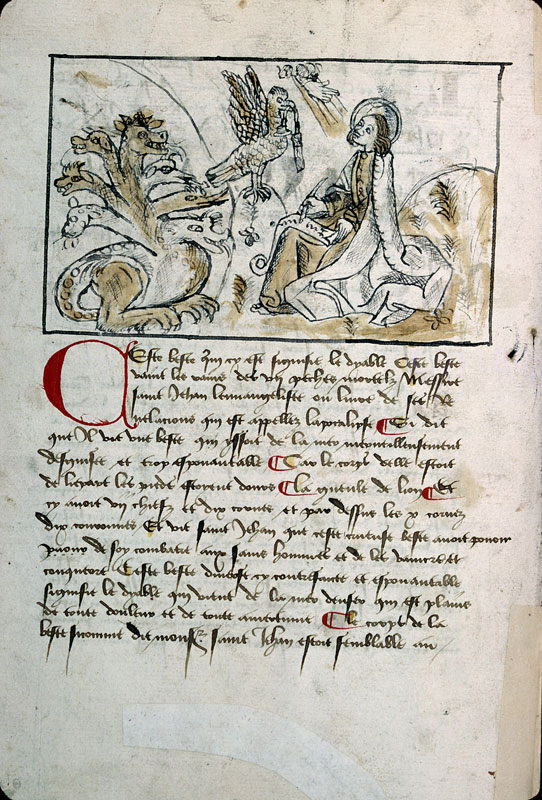 Ceste beste q̄ cy est signifie le dyable Ceste beste
vault les vaulx des vij pechies mortelz Messire
saint Jehan leuangeliste ou liure de ses Re
uelacions qui est appellez lapocalipse Si dit
que Il vit vne beste qui yssoit de la mer merueilleusement
desguisee et trop espouantable Car le corps delle estoit
de liepart les piedz estoyent dours la gueule de lion Et
cy auoit vij chiefz et dix cornes et par dessus les x cornez
dix couronnes Et vit saint Jehan que ceste crueuse beste auoit pouoir
de soy combatre aux sains hommes et de les vaincre et
conquerre Ceste beste dincost cy contrefaicte et espouantable
signifie le dyable qui vient de la mer denfer qui est plaine
de toute douleur et de toute amertume Le corps de la
beste comme dit mons̄ saint Jehan estoit semblable au